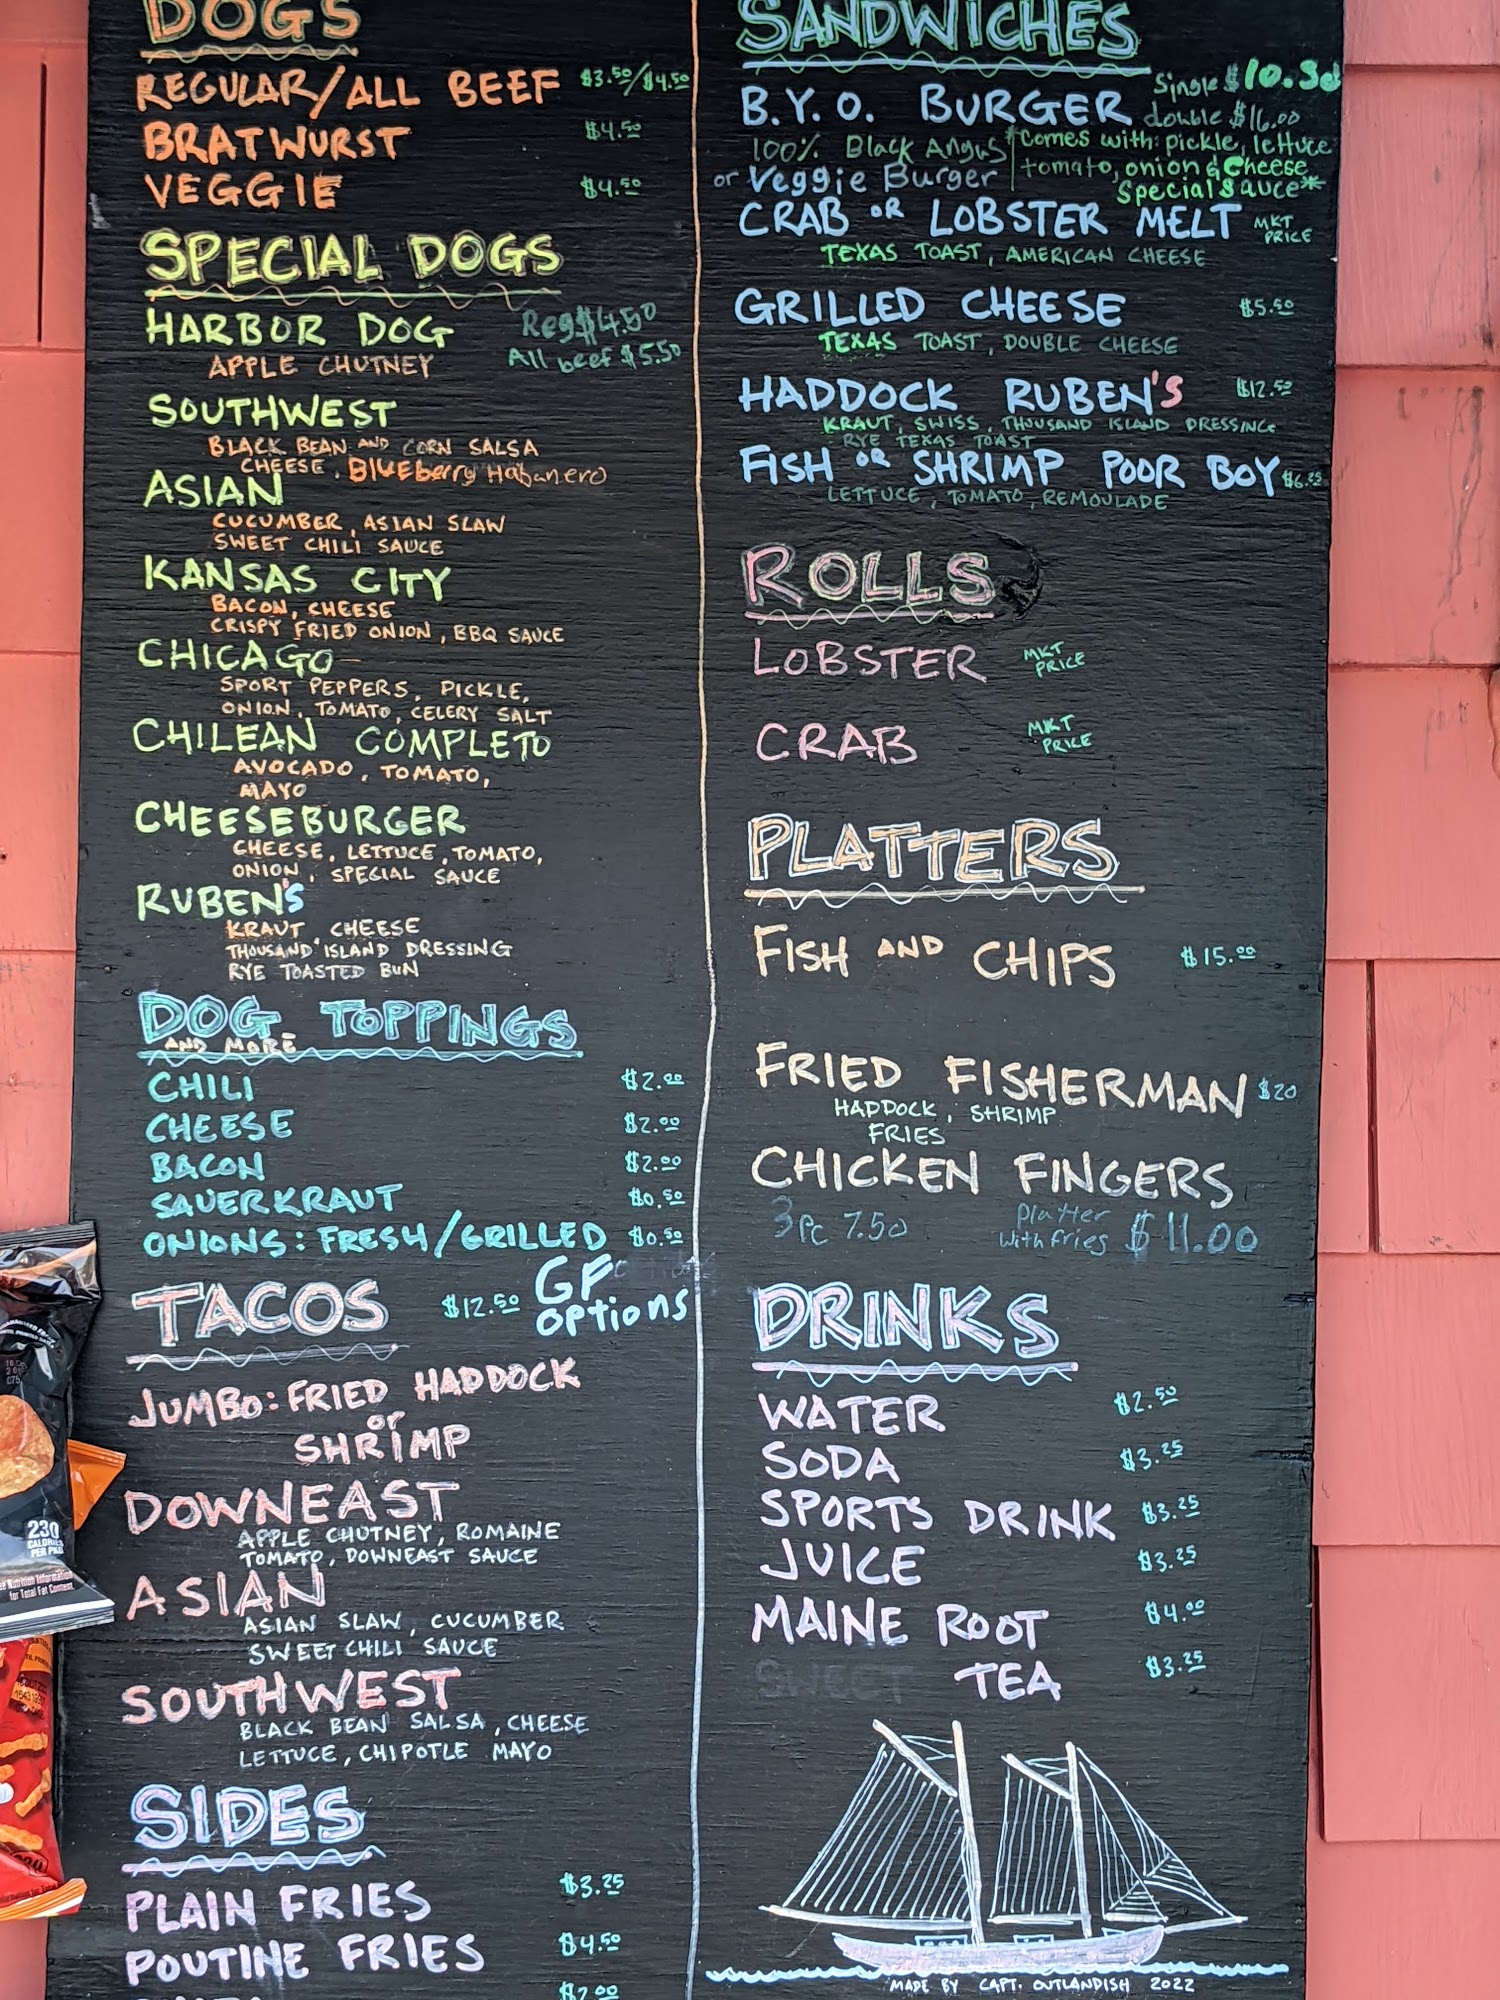 DOGS
REGULAR/ALL BEEF $3.50/$4.50
BRATWURST $4.50
VEGGIE $4.50
SPECIAL DOGS
HARBOR DOG Reg $4.50
APPLE CHUTNEY All beef $5.50
SOUTHWEST
BLACK BEAN AND CORN SALSA
CHEESE, BlUEberry Habanero
ASIAN
CUCUMBER, ASIAN SLAW
SWEET CHILI SAUCE
KANSAS CITY
BACON, CHEESE
CRISPY FRIED ONION, BBQ SAUCE
CHICAGO
SPORT PEPPERS, PICKLE,
ONION, TOMATO, CELERY SALT
CHILEAN COMPLETO
AVOCADO, TOMATO,
MAYO
CHEESEBURGER
CHEESE, LETTUCE, TOMATO,
ONION, SPECIAL SAUCE
RUBEN'S
KRAUT CHEESE
THOUSAND ISLAND DRESSING
RYE TOASTED BUN
DOG TOPPINGS
AND MORE
CHILI $2.00
CHEESE $2.00
BACON $2.00
SAUERKRAUT $0.50
ONIONS: FRESH/GRILLED $0.50
TACOS $12.50 GF options
JUMBO: FRIED HADDOCK
or
SHRIMP
DOWNEAST
APPLE CHUTNEY, ROMAINE
TOMATO, DOWNEAST SAUCE
ASIAN
ASIAN SLAW, CUCUMBER
SWEET CHILI SAUCE
SOUTHWEST
BLACK BEAN SALSA, CHEESE
LETTUCE, CHIPOTLE MAYO
SIDES
PLAIN FRIES $3.25
POUTINE FRIES $4.50
SANDWICHES
Single $10.50
B.Y.O. BURGER double $16.00
100% Black Angus *Comes with: pickle, lettuce
or Veggie Burger tomato, onion & Cheese
Special Sauce*
CRAB OR LOBSTER MELT MKT PRICE
TEXAS TOAST, AMERICAN CHEESE
GRILLED CHEESE $5.50
TEXAS TOAST, DOUBLE CHEESE
HADDOCK RUBEN'S $12.50
KRAUT, SWISS, THOUSAND ISLAND DRESSING
RYE TEXAS TOAST
FISH OR SHRIMP POOR BOY
LETTUCE, TOMATO, REMOULADE
ROLLS
LOBSTER MKT PRICE
CRAB MKT PRICE
PLATTERS
FISH AND CHIPS $15.00
FRIED FISHERMAN $20
HADDOCK, SHRIMP
FRIES
CHICKEN FINGERS
3 Pc 7.50 Platter with fries $11.00
DRINKS
WATER $2.50
SODA $3.25
SPORTS DRINK $3.25
JUICE $3.25
MAINE ROOT $4.00
SWEET TEA $3.25
MADE BY CAPT. OUTLANDISH 2022
230
CALORIES
PER PKG
for Total Fat Content